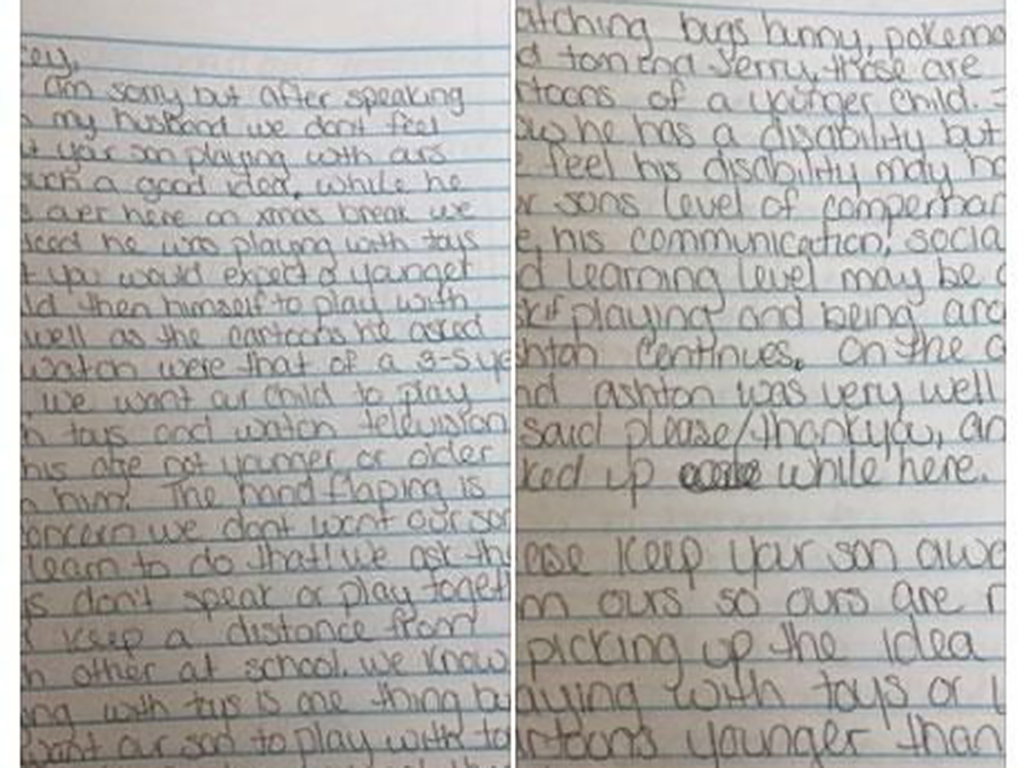 ey,
am sorry but after speaking
my husband we dont feel
t your son playing with ours
such a good idea, while he
s over here on xmas break we
ticed he was playing with toys
t you would expect a younger
ld then himself to play with
well as the cartoons he asked
watch were that of a 3-5 ye
we want our child to play
h toys and watch television
his age not younger or older
n him. The hand flaping is
oncern we dont want our son
learn to do that! we ask the
s don't speak or play togeth
keep a distance from
h other at school. we know
ing with toys is one thing bu
want our son to play with to
atching bugs bunny, pokemo
d tom and Jerry, those are
rtoons of a younger child.
ow he has a disability but
e feel his disability may ho
r sons level of comperhan
e, his communication, socia
d learning level may be a
sk if playing and being aro
shton continues. On the o
nd ashton was very well
said please/thankyou, an
ked up while here.
ase keep your son awa
m ours so ours are n
picking up the idea
aying with toys or
rtoons younger than